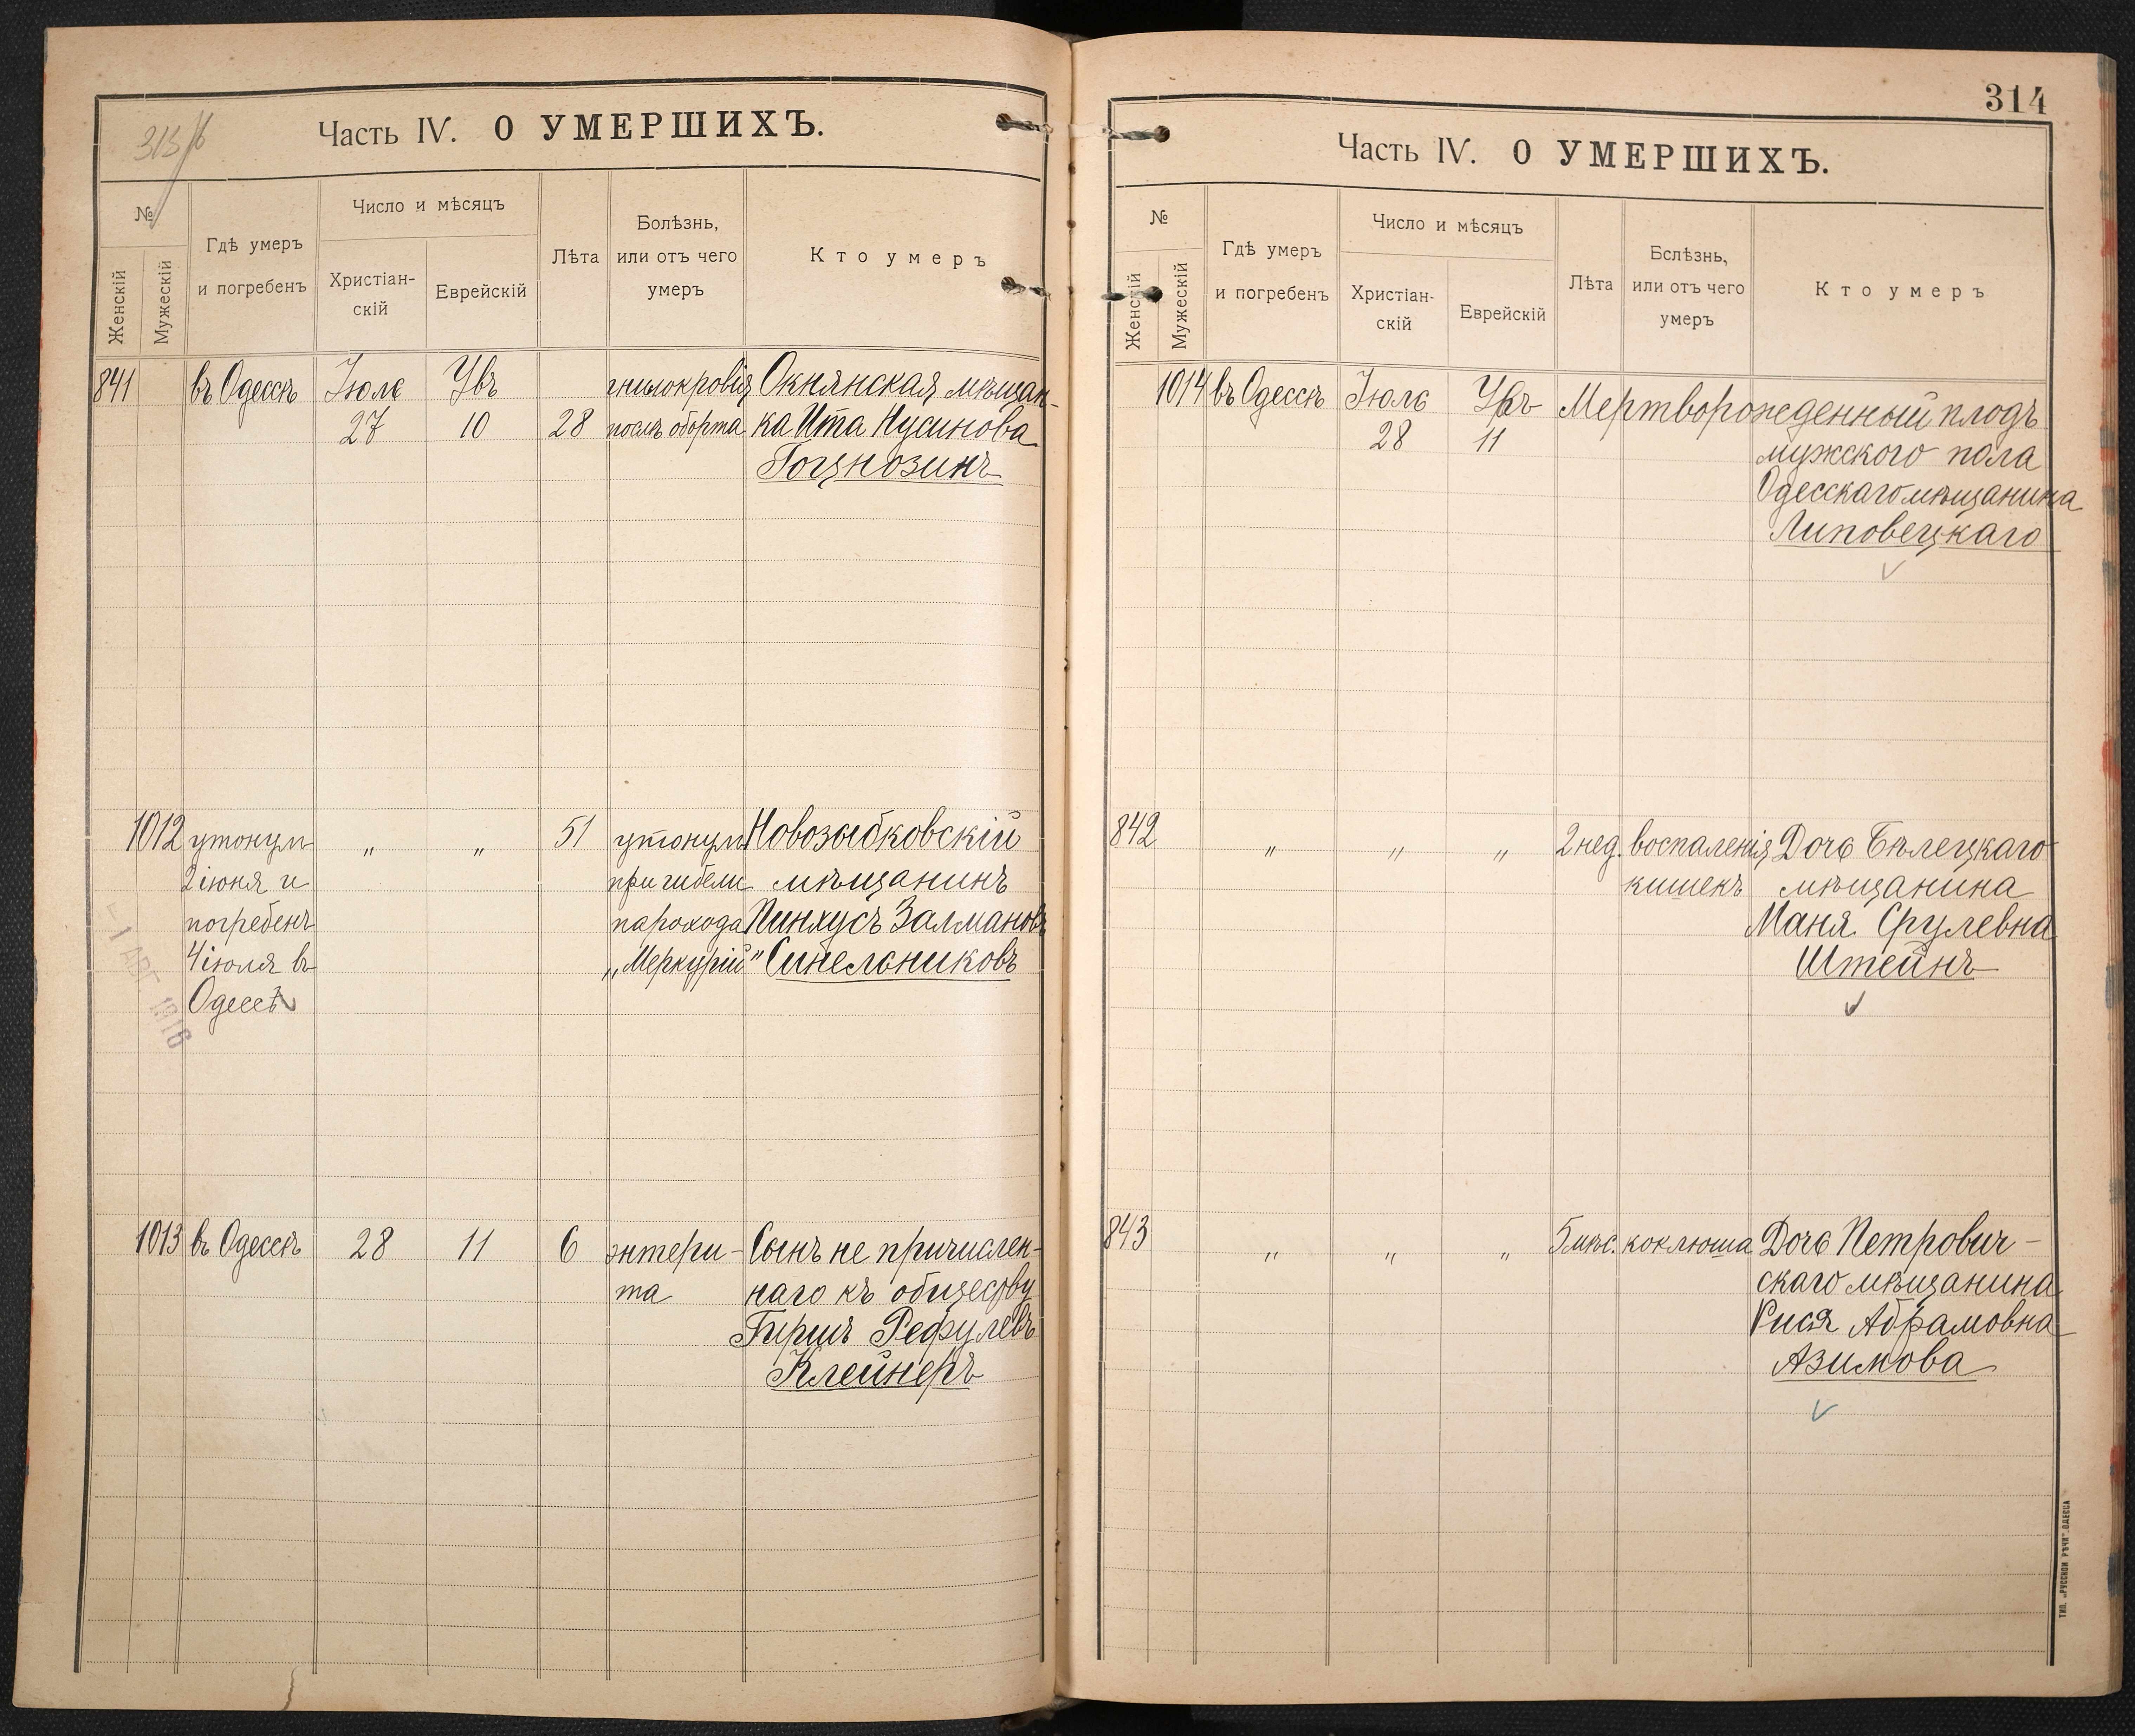 313/б
Часть IV. О УМЕРШИХЪ.
№
Женскій
Мужескій
Гдѣ умеръ
и погребенъ
Число и мѣсяцъ
Христіан-
скій
Еврейскій
Лѣта
Болѣзнь,
или отъ чего
умеръ
Кто умеръ
841 въ Одессѣ Іюль Увъ гнилокровія Окнянская мѣщан-
27 10 28 послѣ аборта ка Ита Нусинова
Гогцнозинъ
1012 утонул „ „ 51 утонул Новозыбковскій
2 іюня и при гибели мѣщанинъ
погребенъ парохода Пинхусъ Залмановъ
4 іюля въ „Меркурій" Синельниковъ
Одессѣ
-1 АВГ 1916
1013 въ Одессѣ 28 11 6 энтери- Сынъ не причислен-
та наго къ обществу
Гершъ Рефулевъ
Клейнеръ
314
Часть IV. О УМЕРШИХЪ.
№
Женскій
Мужескій
Гдѣ умеръ
и погребенъ
Число и мѣсяцъ
Христіан-
скій
Еврейскій
Лѣта
Бслѣзнь,
или отъ чего
умеръ
Кто умеръ
1014 въ Одессѣ Іюль Увъ Мертворожденный плодъ
28 11 мужского пола
Одесскаго мѣщанина
Липовецкаго
842 „ „ „ 2 нед. воспаленія Дочь Бѣлецкаго
кишекъ мѣщанина
Маня Срулевна
Штейнъ
843 „ „ „ 5 мѣс. коклюша Дочь Петрович-
скаго мѣщанина
Рися Абрамовна
Азимова
ТИП. „РУССКОЙ РѢЧИ" ОДЕССА